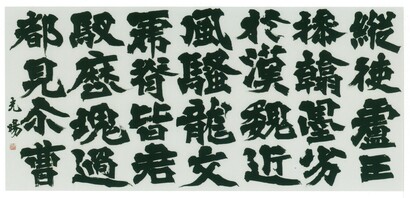 縱使盧王
操翰墨劣
於漢魏近
風騷龍文
虎脊皆君
馭歷塊過
都見尒曹